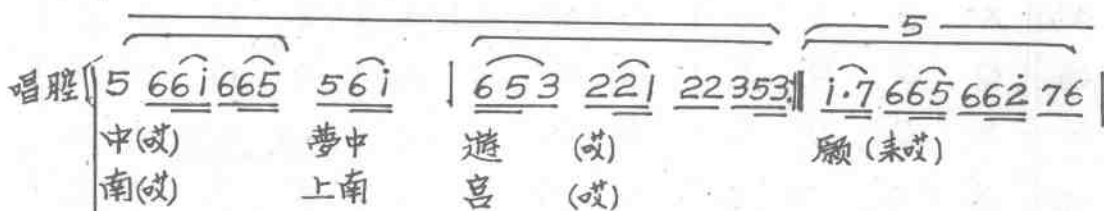 5
唱腔 5 66i̇665 56i̇ | 653 221 22353 ‖ i̇·7 665 662̇ 76 |
中(哎) 夢中 遊 (哎) 願(来哎)
南(哎) 上南 宫 (哎)